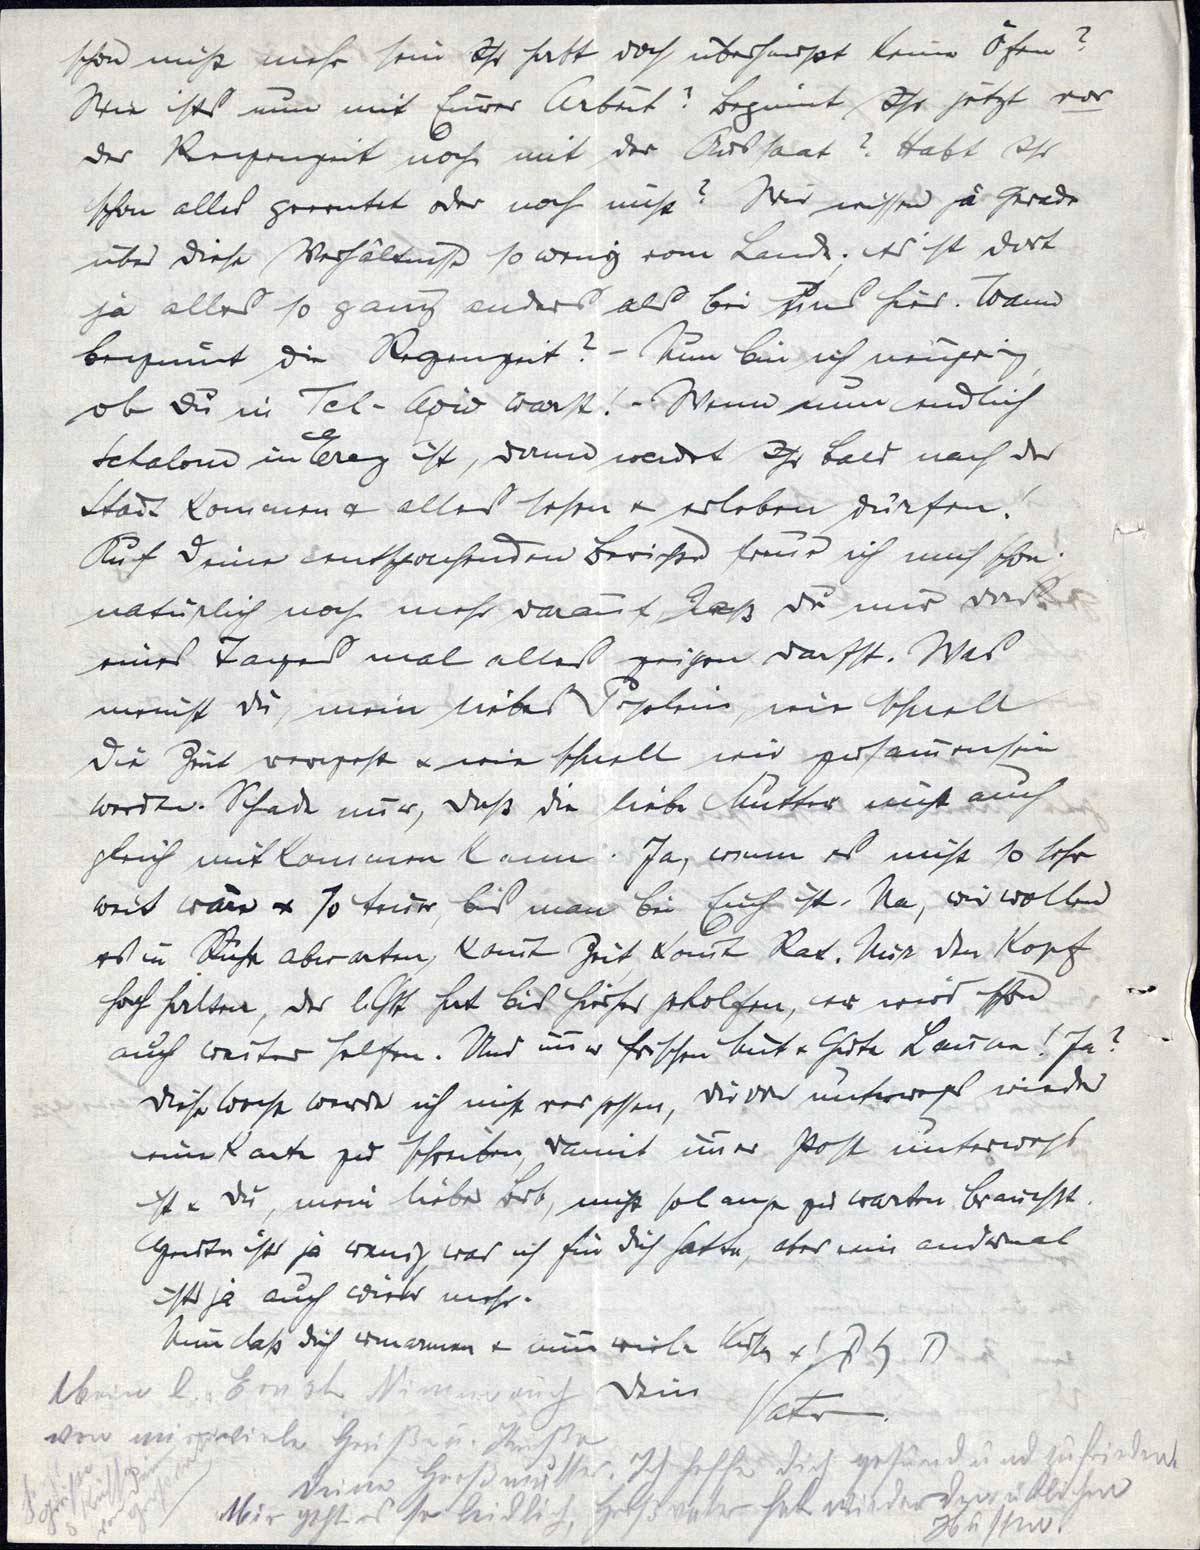 schon nicht mehr sein Ihr habt doch überhaupt keine Öfen?
Wie ists nun mit Eurer Arbeit? Beginnt Ihr jetzt vor
der Regenzeit noch mit der Aussaat? Habt Ihr
schon alles geerntet oder noch nicht? Wir wissen ja gerade
über diese Verhältnisse so wenig vom Lande; es ist dort
ja alles so ganz anders als bei uns hier. Wann
beginnt die Regenzeit? - Nun bin ich neugierig,
ob Du in Tel-Aviv warst! - Wenn nun endlich
Schalom in Erez ist, dann werdet Ihr bald nach der
Stadt kommen & alles sehen & erleben dürfen!
Auf Deine entsprechenden Berichte freue ich mich schon.
natürlich noch mehr darauf daß Du mir dort
eines Tages mal alles zeigen darfst. Was
meinst Du, mein lieber, wie schnell
die Zeit vergeht & wie schnell wir zusammensein
werden. Schade nur, daß die liebe Mutter nicht auch
gleich mitkommen kann. Ja, wenn es nicht so sehr
weit wäre & so teuer, bis man bei Euch ist. Na, wir wollen
es in Ruhe abwarten, kommt Zeit kommt Rat. Nur den Kopf
hoch halten, der hat bis hierher geholfen, er wird schon
auch weiter helfen. Und nur frischen Mut & Gute Laune! Ja?
Diese Woche werde ich nicht vergessen, Dir unterwegs wieder
eine Karte zu schreiben, damit immer Post unterwegs
ist & Du, mein lieber, nicht solange zu warten brauchst.
Heute ists ja wenig was ich für Dich hatte, aber ein andermal
ists ja auch wieder mehr.
Nun laß Dich umarmen & nimm viele Küsse
Dein
Vater.
Mein l. Ernst Nimm auch
von mir viele Grüße u. Küsse
Deine Großmutter. Ich hoffe Dich gesund und zufrieden.
Mir geht es so leidlich, Großvater hat wieder den üblichen
Husten.